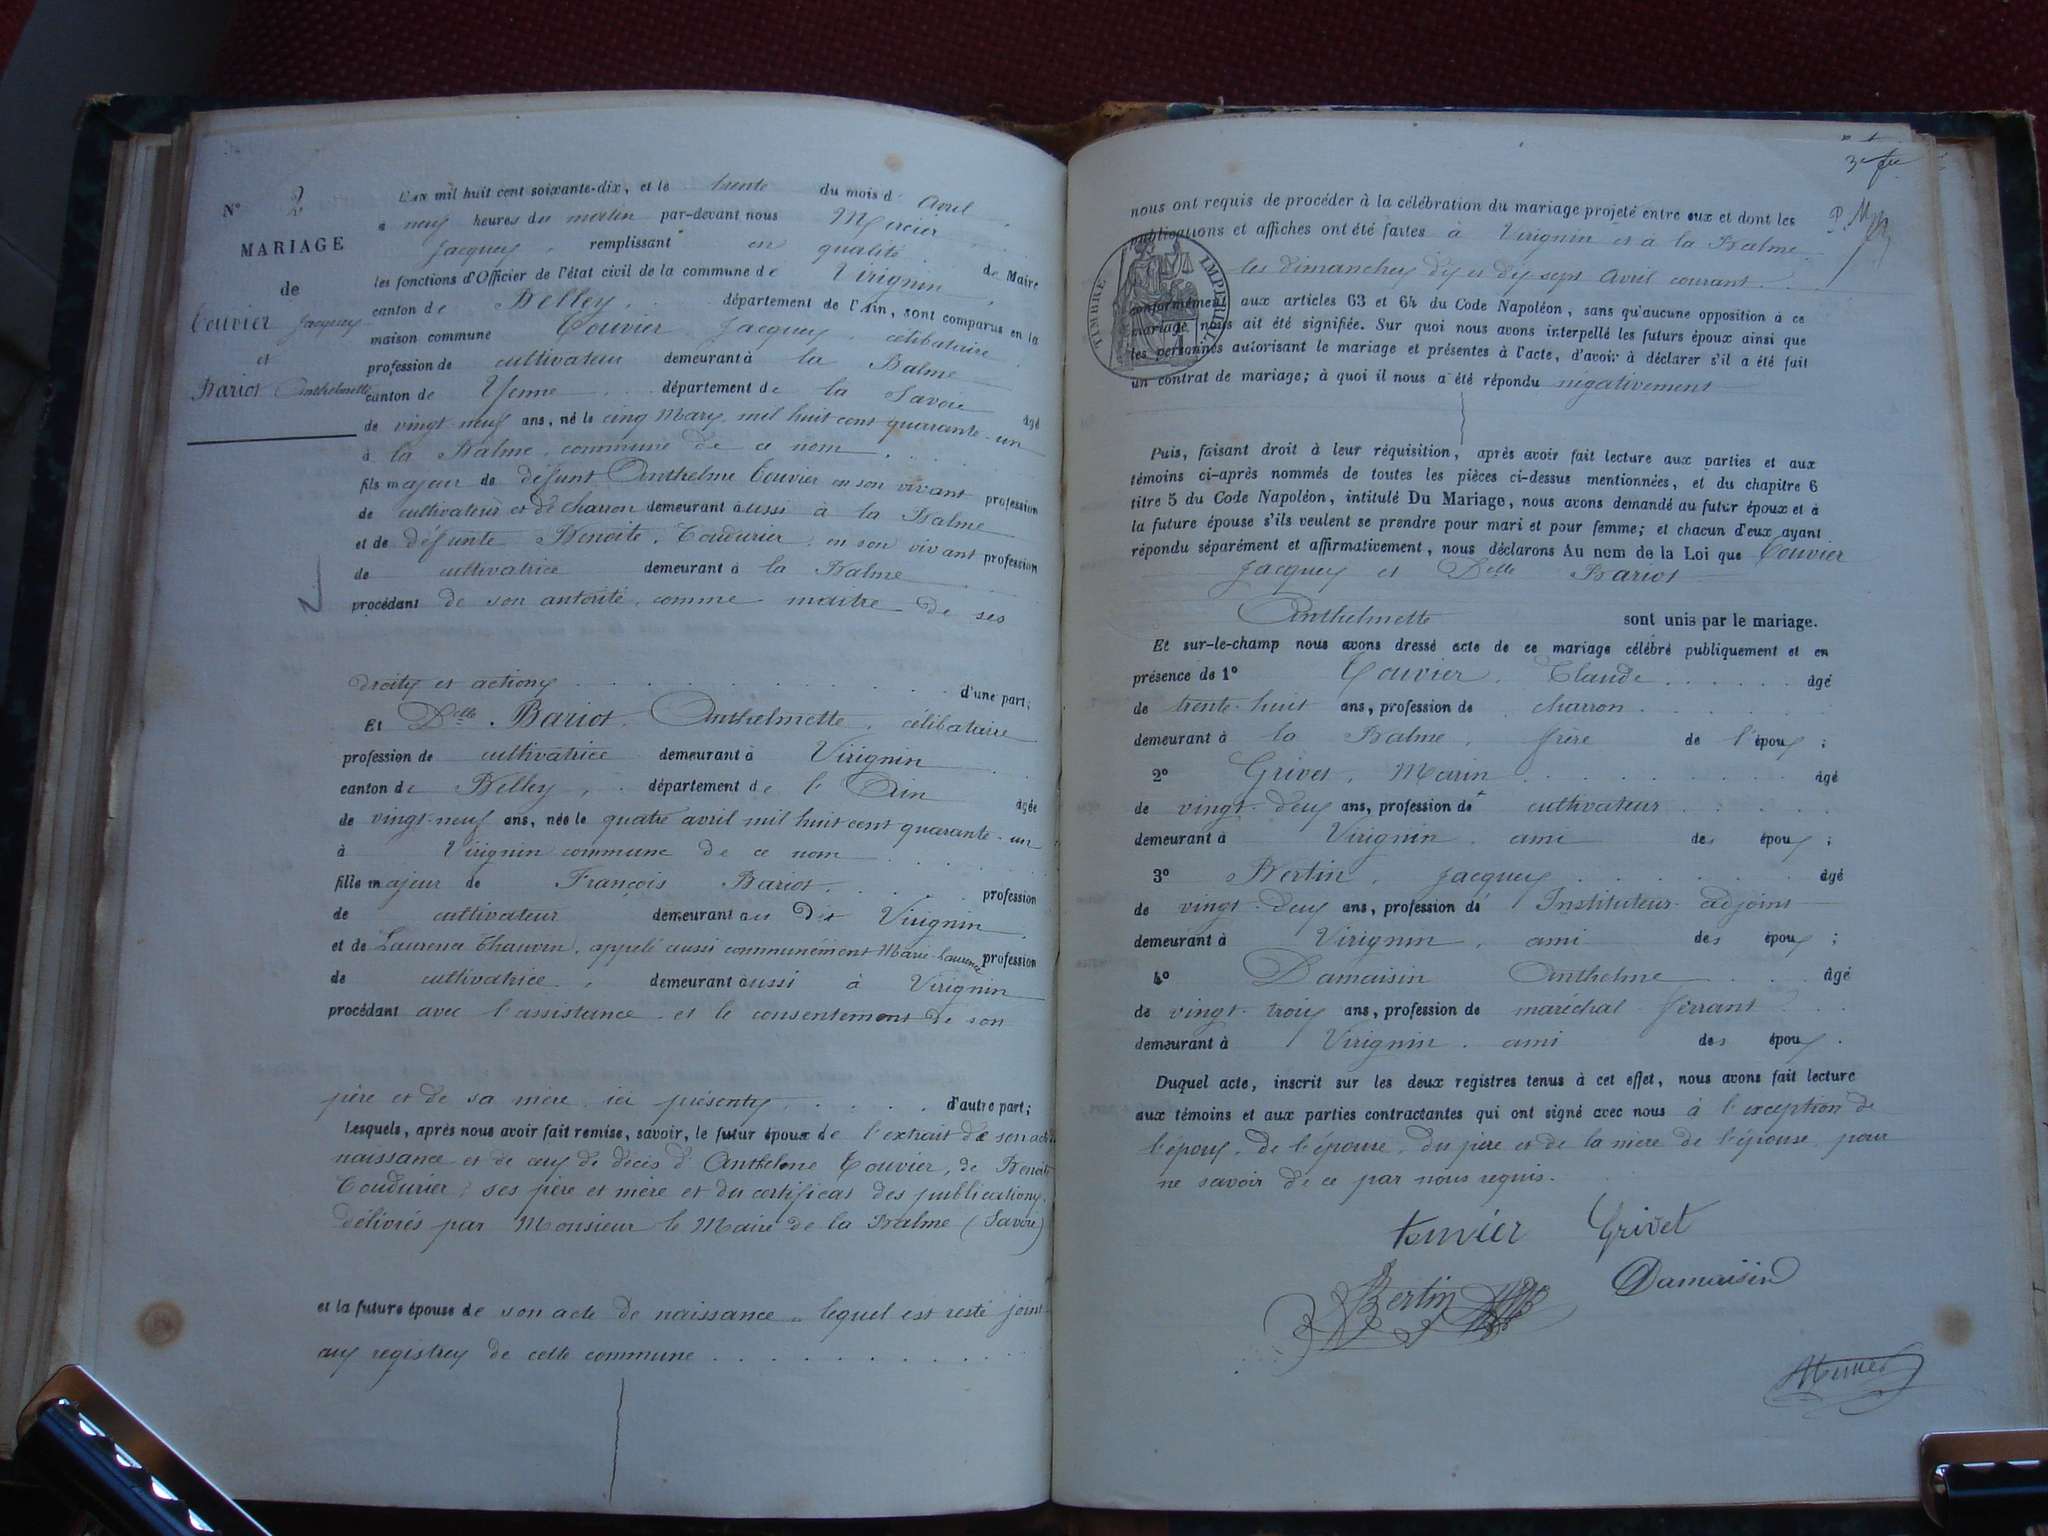 N° 2
MARIAGE
de
Touvier Jacques
et
Bariot Anthelmette
L'an mil huit cent soixante-dix, et le trente du mois d'Avril
à neuf heures du matin par-devant nous Mercier
Jacques, remplissant en qualité de Maire
les fonctions d'Officier de l'état civil de la commune de Virignin
canton de Belley, département de l'Ain, sont comparus en la
maison commune Touvier Jacques, célibataire
profession de cultivateur demeurant à la Balme
canton de Yenne département de la Savoie âgé
de vingt-neuf ans, né le cinq Mars mil huit cent quarante-un
à la Balme, commune de ce nom
fils majeur de défunt Anthelme Touvier en son vivant profession
de cultivateur et de charron demeurant aussi à la Balme
et de défunte Benoite Coudurier, en son vivant profession
de cultivatrice demeurant à la Balme
procédant de son autorité, comme maître de ses
droits et actions d'une part;
Et Delle Bariot, Anthelmette, célibataire
profession de cultivatrice demeurant à Virignin
canton de Belley, département de l'Ain âgée
de vingt-neuf ans, née le quatre avril mil huit cent quarante-un
à Virignin commune de ce nom
fille majeur de François Bariot, profession
de cultivateur demeurant au dit Virignin
et de Laurence Chauvin, appelé aussi communément Marie-Laurence profession
de cultivatrice, demeurant aussi à Virignin
procédant avec l'assistance et le consentement de son
père et de sa mère ici présents d'autre part;
Lesquels, après nous avoir fait remise, savoir, le futur époux de l'extrait de son acte
naissance et de ceux de décès d'Anthelme Touvier, de Benoite
Coudurier, ses père et mère et du certificat des publications
délivrés par Monsieur le Maire de la Balme (Savoie)
et la future épouse de son acte de naissance, lequel est resté joint
aux registres de cette commune
3e fe
nous ont requis de procéder à la célébration du mariage projeté entre eux et dont les
publications et affiches ont été faites à Virignin et à la Balme
les dimanches dix et dix sept Avril courant
conformément aux articles 63 et 64 du Code Napoléon, sans qu'aucune opposition à ce
mariage nous ait été signifiée. Sur quoi nous avons interpellé les futurs époux ainsi que
les personnes autorisant le mariage et présentes à l'acte, d'avoir à déclarer s'il a été fait
un contrat de mariage; à quoi il nous a été répondu négativement
TIMBRE IMPÉRIAL
Puis, faisant droit à leur réquisition, après avoir fait lecture aux parties et aux
témoins ci-après nommés de toutes les pièces ci-dessus mentionnées, et du chapitre 6
titre 5 du Code Napoléon, intitulé Du Mariage, nous avons demandé au futur époux et à
la future épouse s'ils veulent se prendre pour mari et pour femme; et chacun d'eux ayant
répondu séparément et affirmativement, nous déclarons Au nom de la Loi que Touvier
Jacques et Delle Bariot
Anthelmette sont unis par le mariage.
Et sur-le-champ nous avons dressé acte de ce mariage célébré publiquement et en
présence de 1° Touvier, Claude âgé
de trente-huit ans, profession de charron
demeurant à la Balme, frère de l'époux;
2° Grivet, Marin âgé
de vingt-deux ans, profession de cultivateur
demeurant à Virignin, ami des époux;
3° Bertin, Jacques âgé
de vingt-deux ans, profession de Instituteur-adjoint
demeurant à Virignin, ami des époux;
4° Damaisin Anthelme âgé
de vingt-trois ans, profession de maréchal-ferrant
demeurant à Virignin, ami des époux.
Duquel acte, inscrit sur les deux registres tenus à cet effet, nous avons fait lecture
aux témoins et aux parties contractantes qui ont signé avec nous à l'exception de
l'époux, de l'épouse, du père et de la mère de l'épouse, pour
ne savoir de ce par nous requis.
touvier Grivet
Bertin Damaisin
Mercier